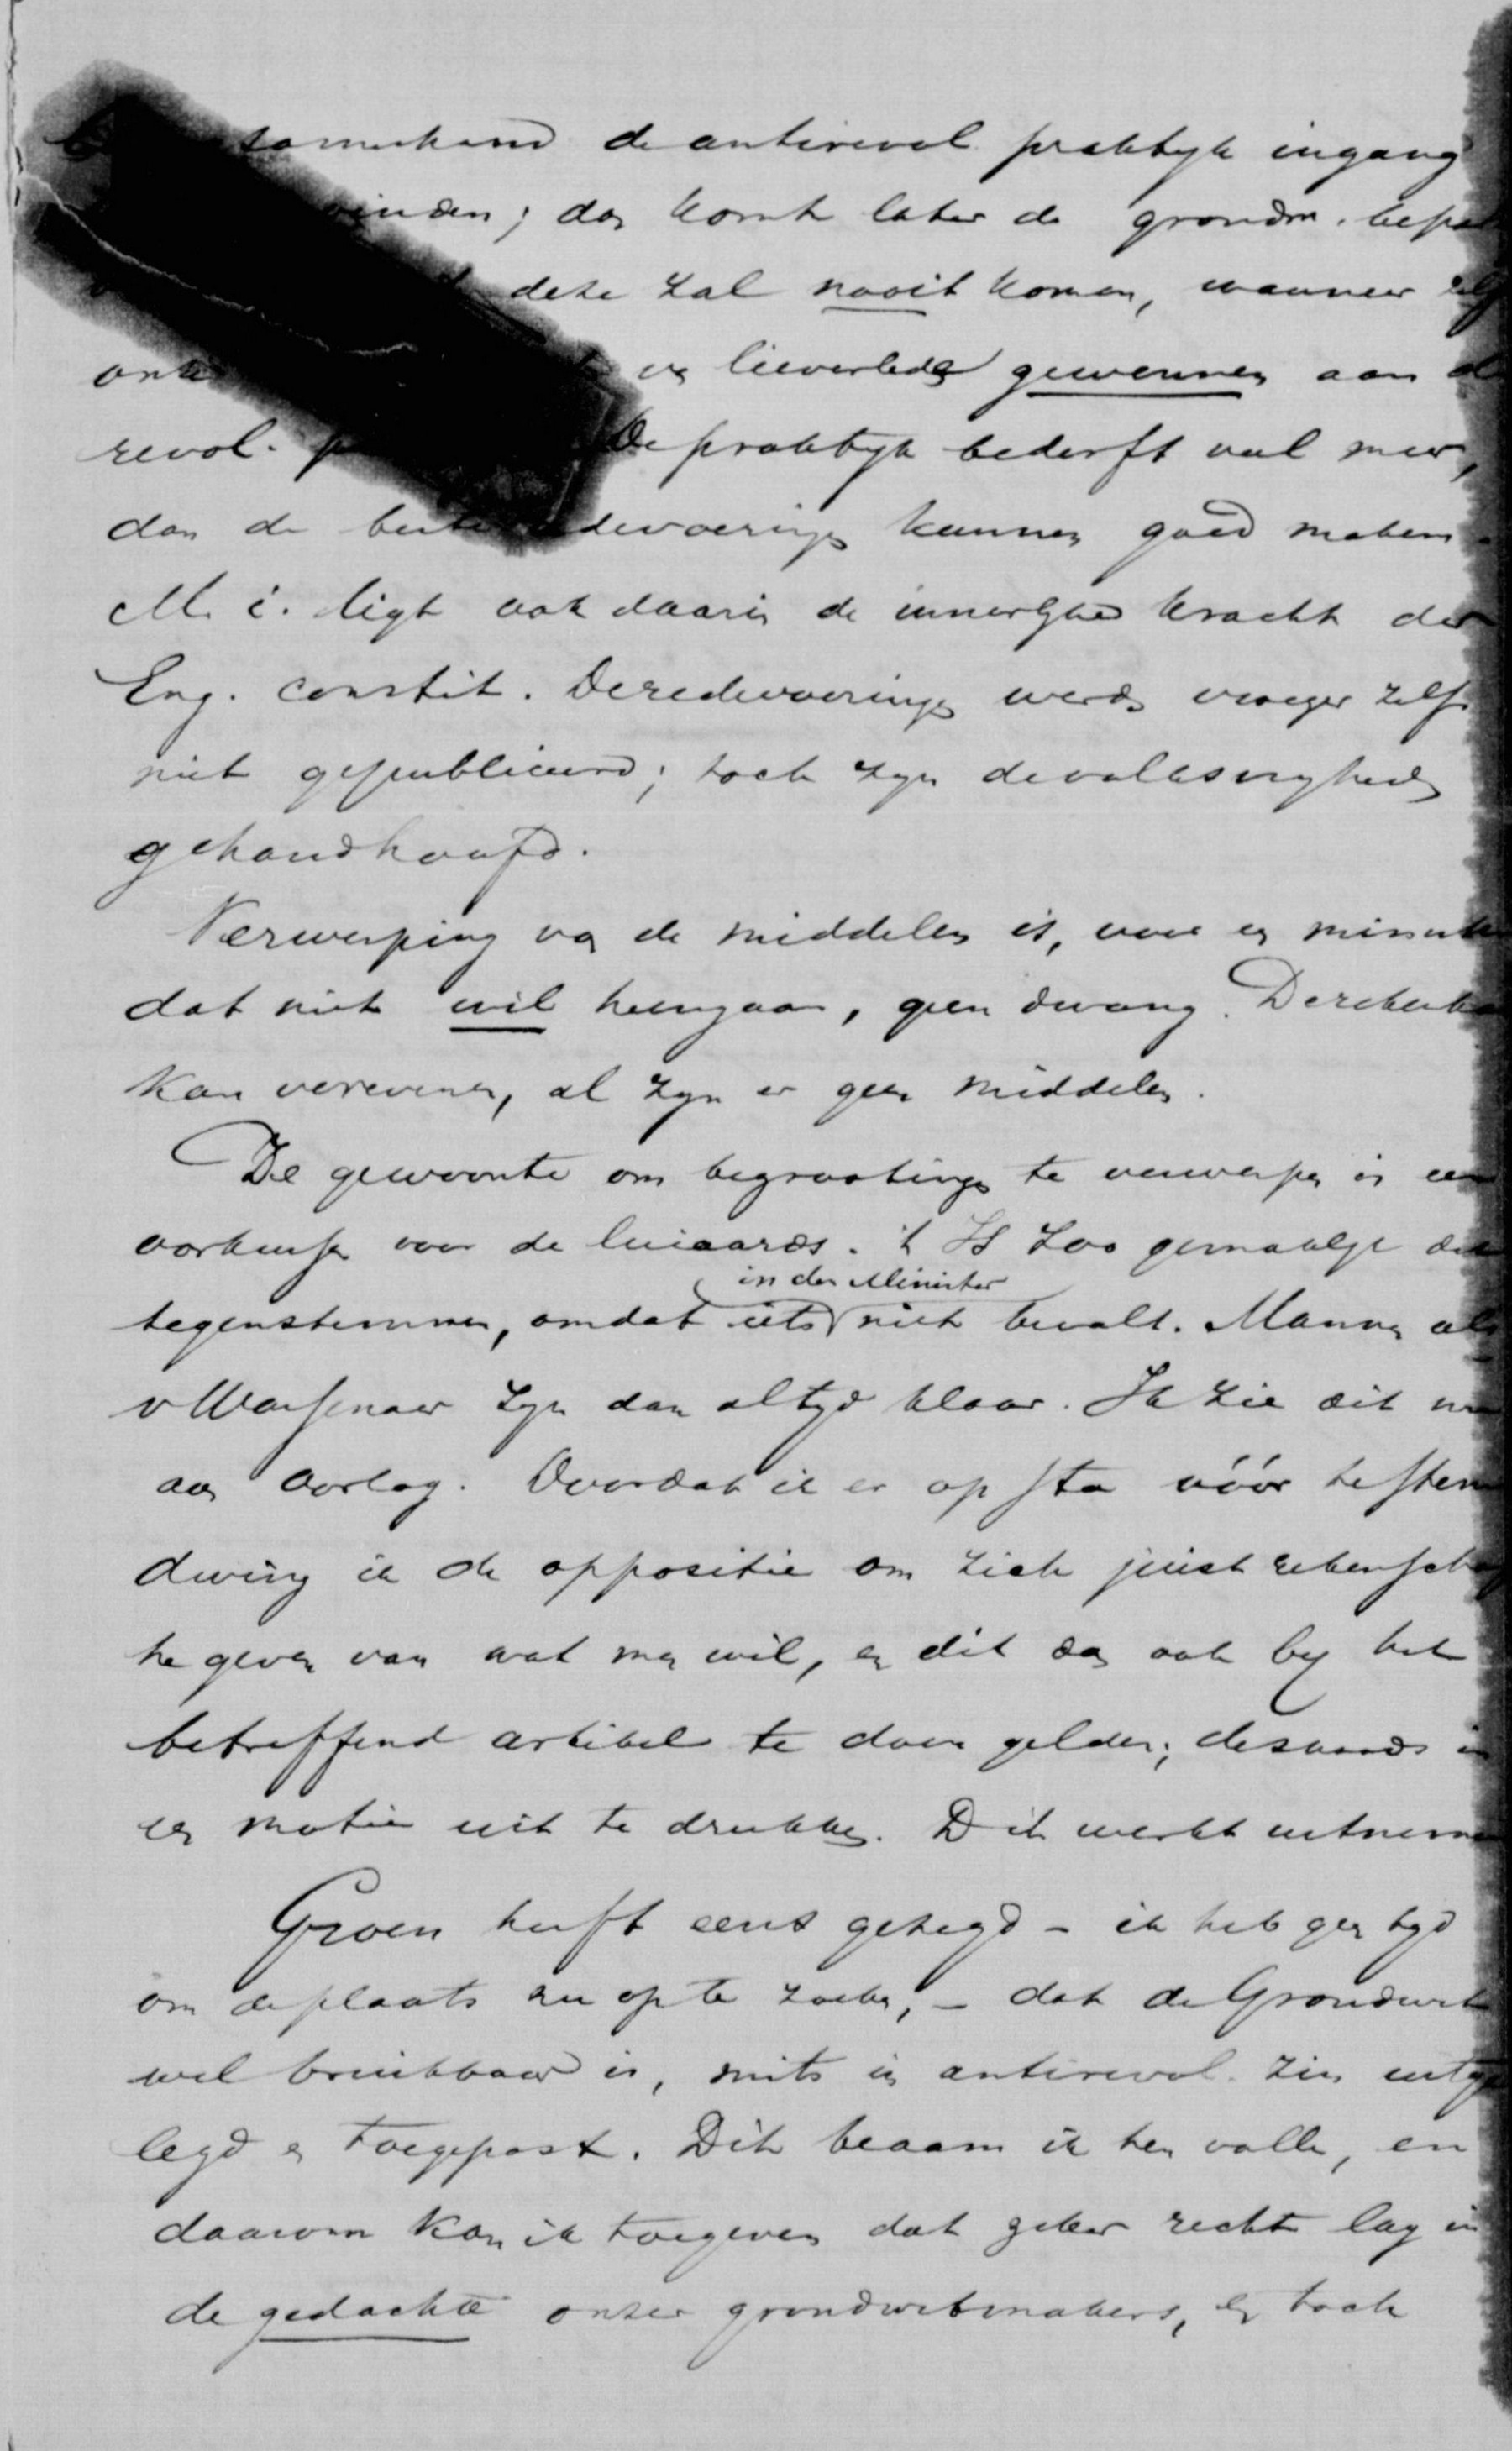 de antirevol. praktyk ingang
vinden; dan komt later de grondw. bepa
deze zal nooit komen, wanneer
en lieverlede gewennen aan d
revol. p De praktyk bederft veel meer,
dan de beste redevoeringen kunnen goed maken.
M. i. ligt ook daarin de innerlyke kracht der
Eng. constit. De redevoeringen werden vroeger zelfs
niet gepubliceerd; toch zyn de volksvryheden
gehandhaafd.
Verwerping van de middelen is, voor een minister
dat niet wil heengaan, geen dwang. De rekenk
kan verevenen, al zyn er geen middelen.
De gewoonte om begrootingen te verwerpen is een
oorkussen voor de luiaards. 't Is zoo gemakkelyk
tegenstemmen, omdat iets in den Minister niet bevalt. Mannen als
v Wassenaer zyn dan altyd klaar. Ik zie dit nu
aan Oorlog. Doordat ik er op sta vóór te stem
dwing ik de oppositie om zich juist rekenscha
te geven van wat men wil, en dit dan ook by het
betreffend artikel te doen gelden; desnoods in
een motie uit te drukken. Dit werkt uitneme
Groen heeft eens gezegd - ik heb geen tyd
om de plaats nu op te zoeken, - dat de Grondwet
wel bruikbaar is, mits in antirevol. zin uitge
legd en toegepast. Dit beaam ik ten volle, en
daarom kan ik toegeven dat zeker recht lag in
de gedachte onzer grondwetmakers, en toch